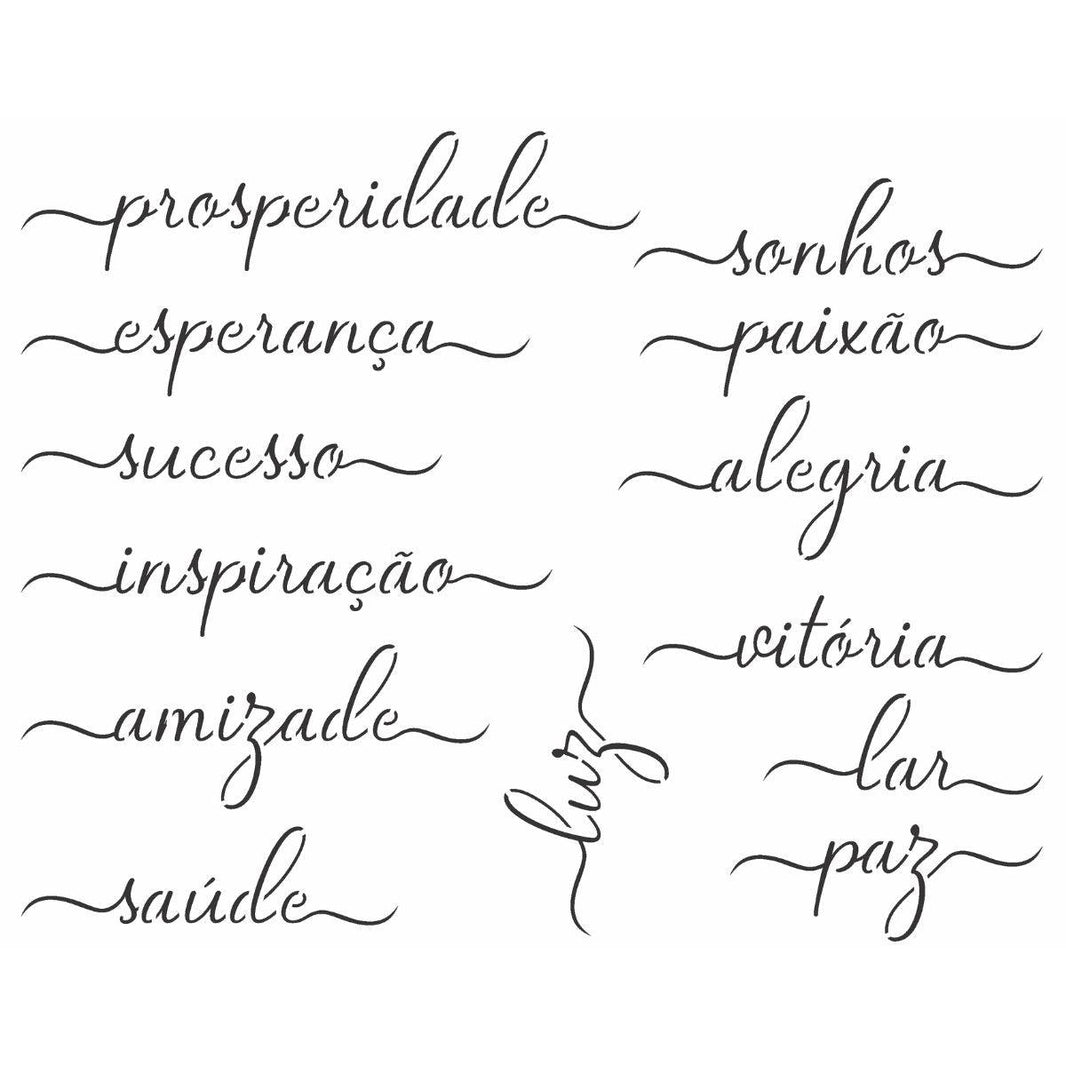 prosperidade
esperança
sucesso
inspiração
amizade
saúde
luz
sonhos
paixão
alegria
vitória
lar
paz